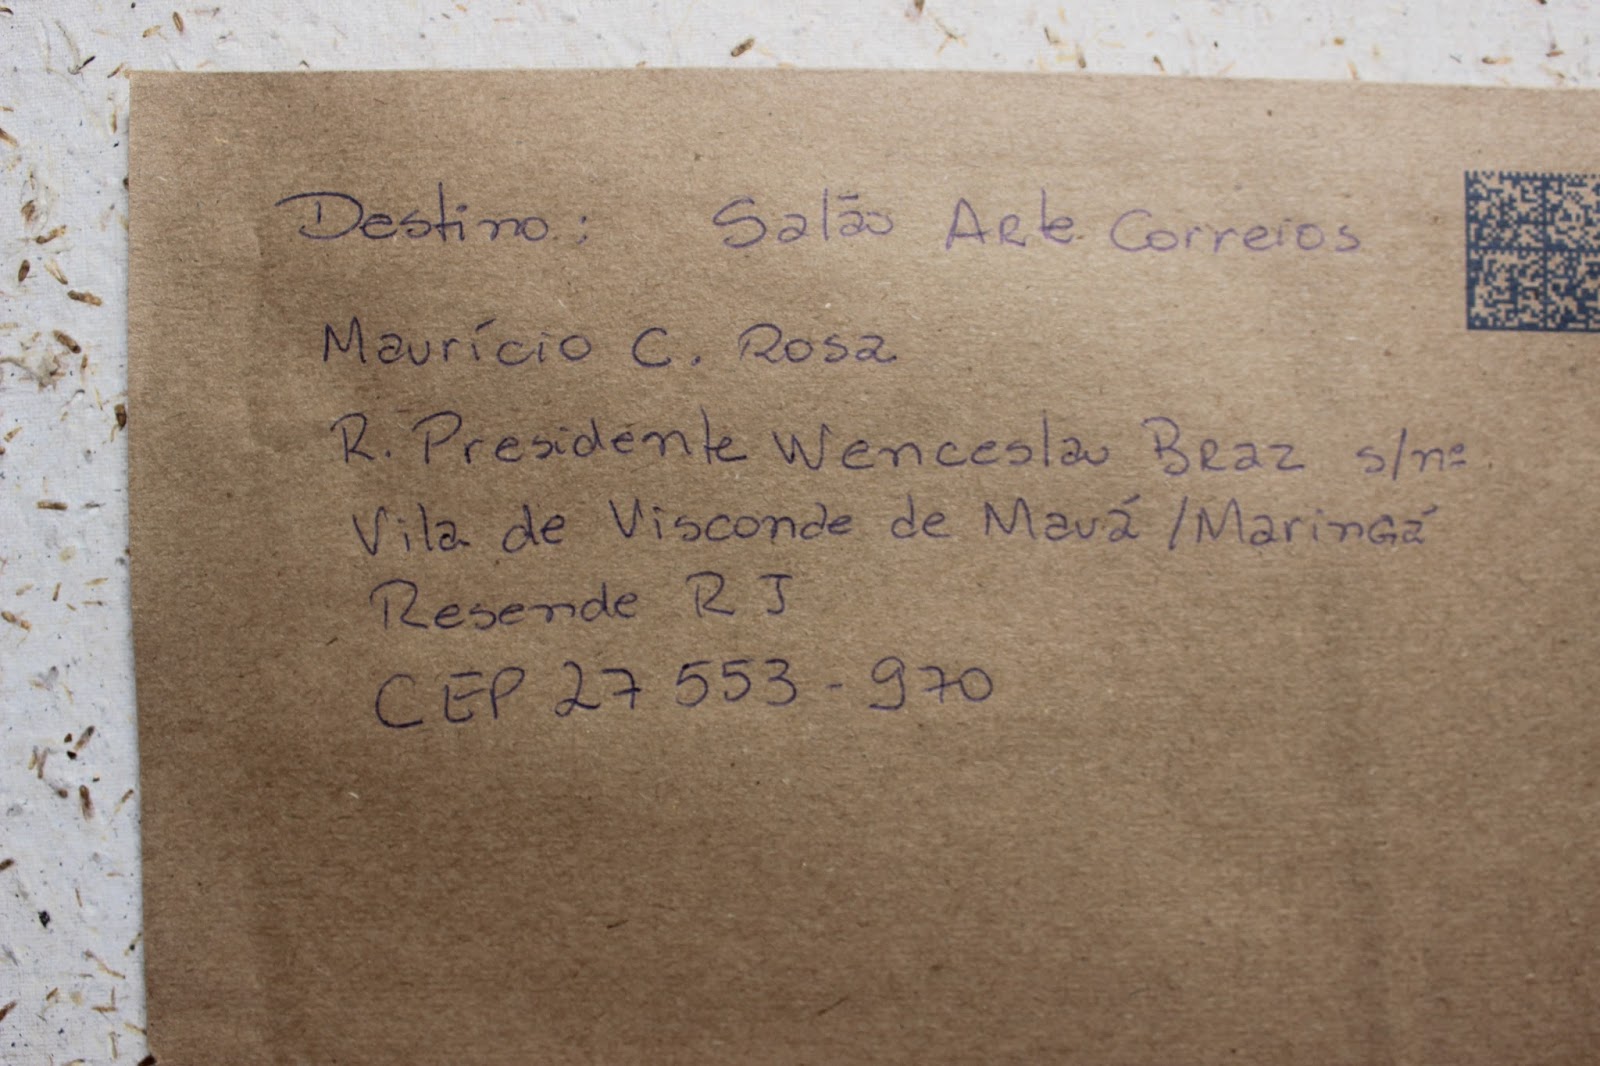 Destino: Salão Arte Correios
Maurício C. Rosa
R. Presidente Wenceslau Braz s/nº
Vila de Visconde de Mauá / Maringá
Resende RJ
CEP 27 553 - 970